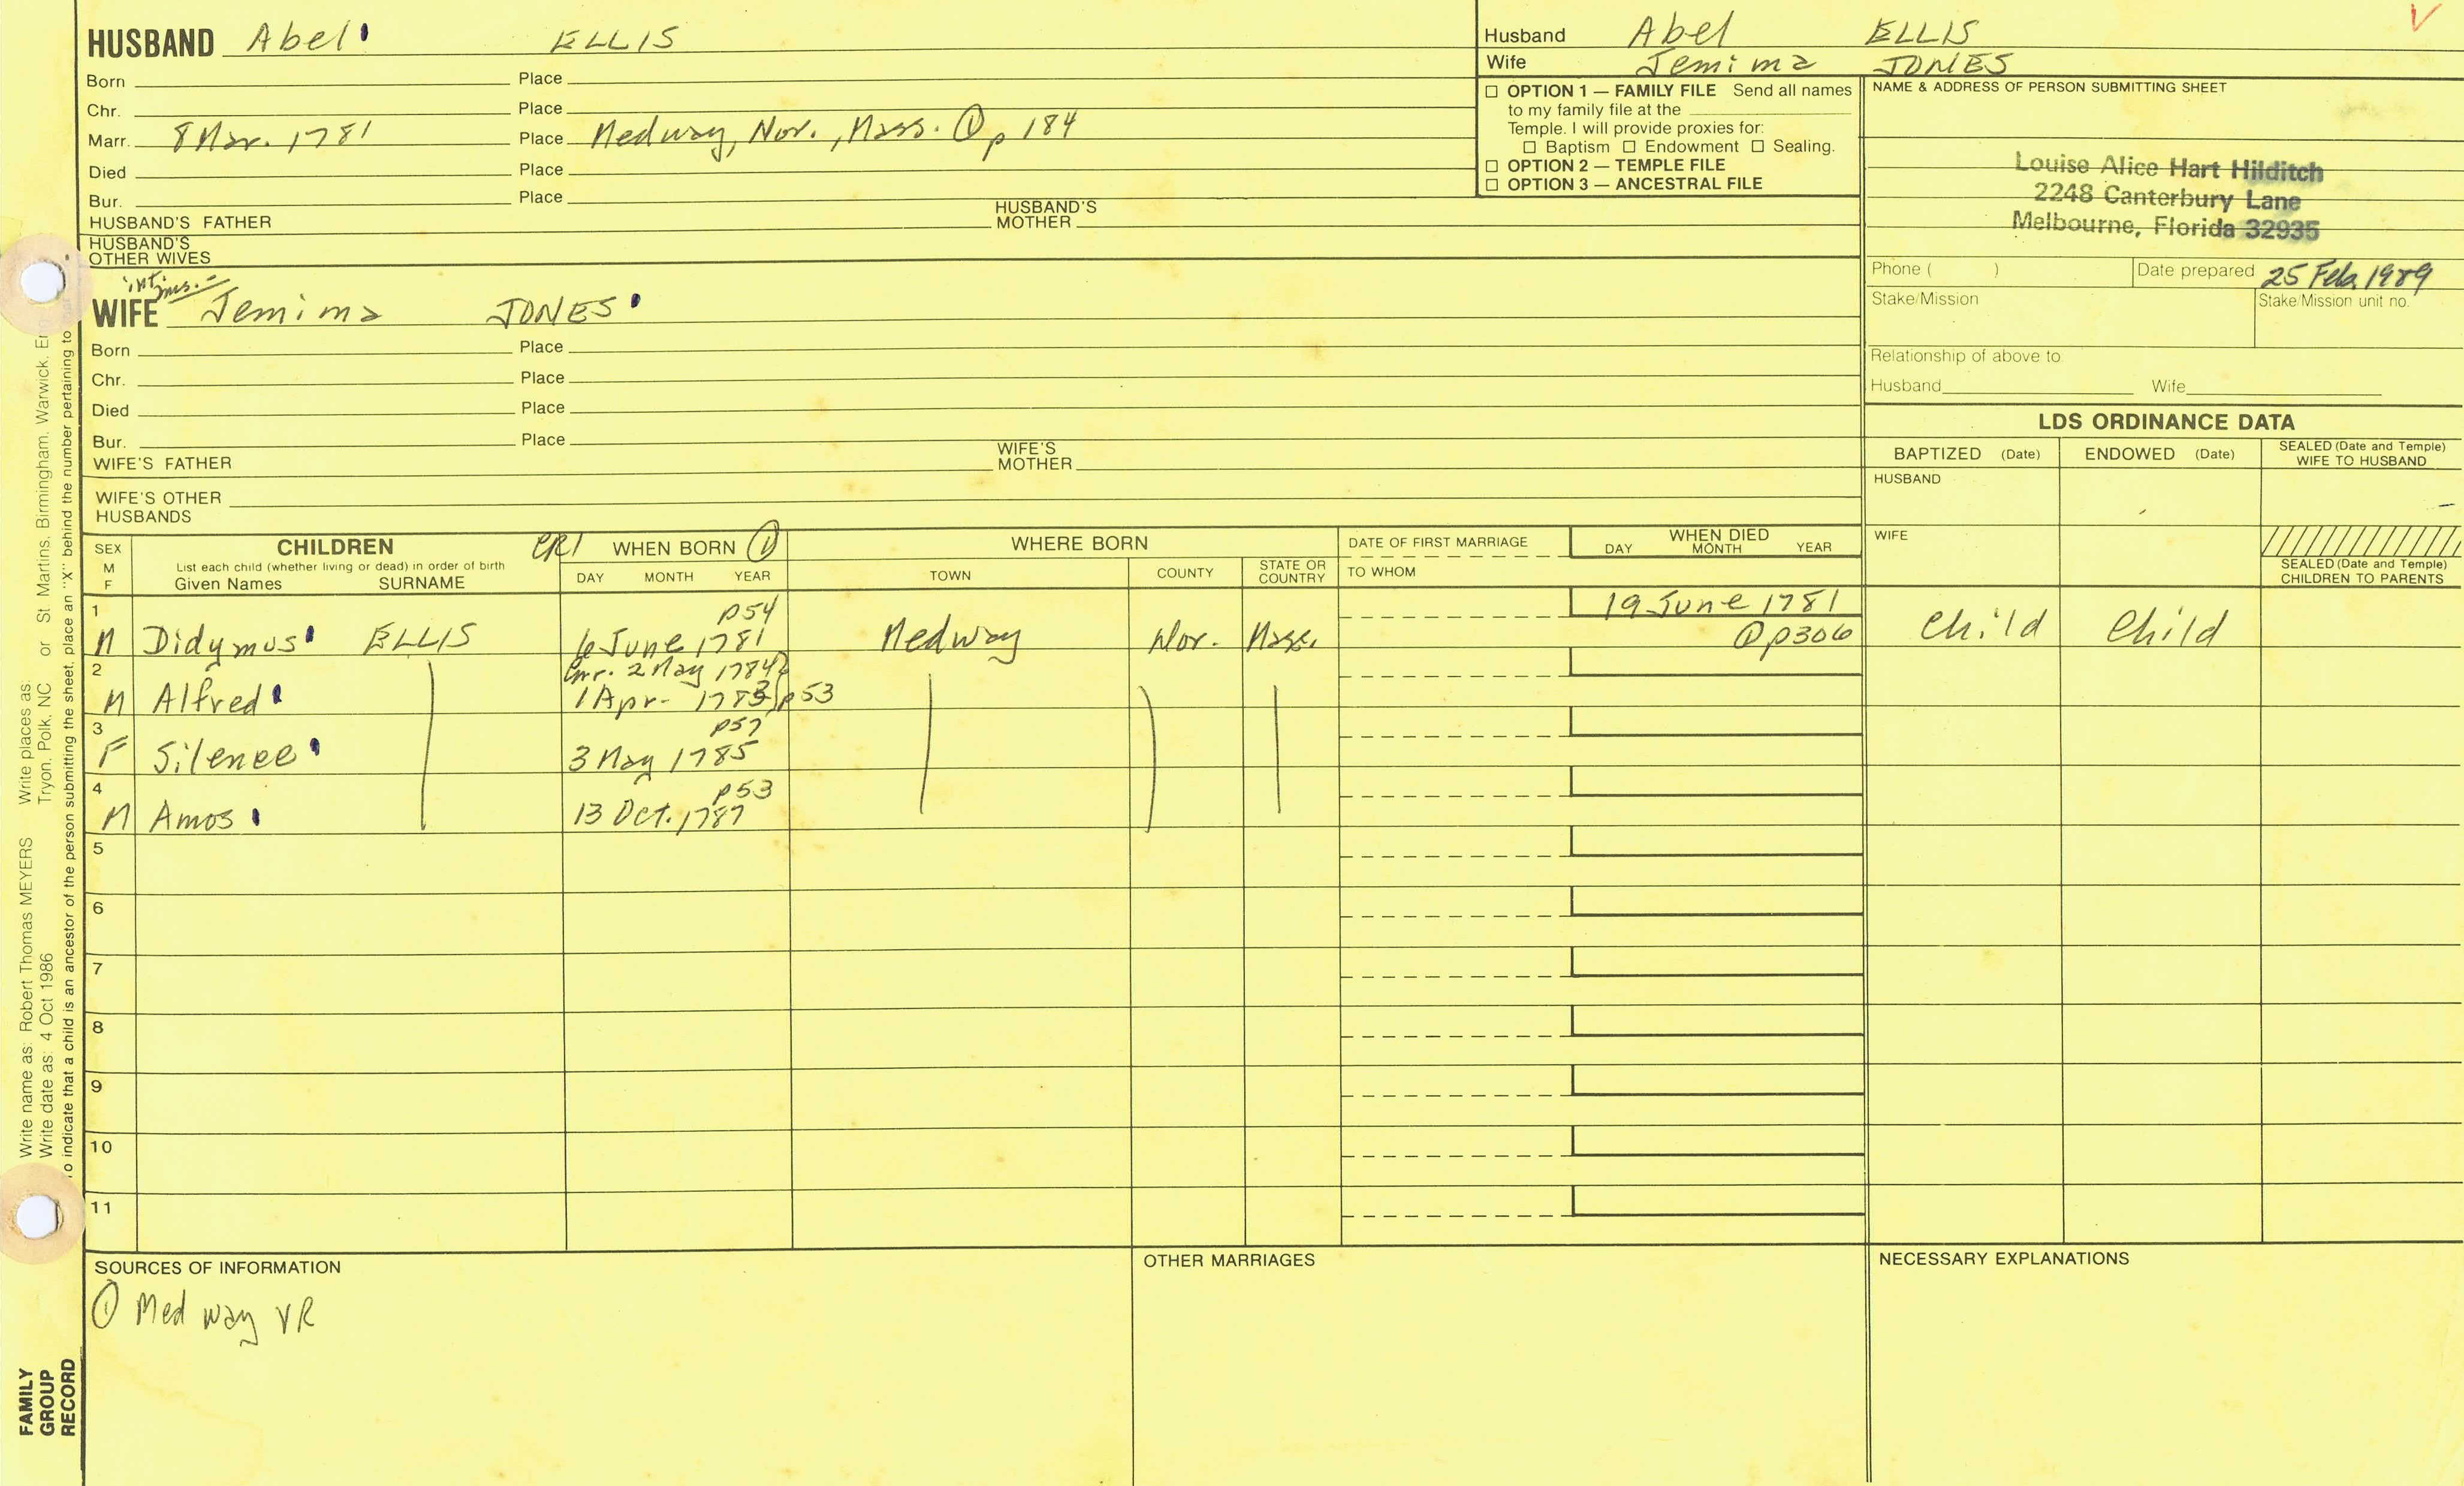 HUSBAND Abel ELLIS
Born Place
Chr. Place
Marr. 8 Mar. 1781 Place Medway, Nor., Mass. ① p 184
Died Place
Bur. Place
HUSBAND'S FATHER HUSBAND'S MOTHER
HUSBAND'S OTHER WIVES
Husband Abel ELLIS
Wife Jemima JONES
☐ OPTION 1 — FAMILY FILE Send all names
to my family file at the
Temple. I will provide proxies for:
☐ Baptism ☐ Endowment ☐ Sealing.
☐ OPTION 2 — TEMPLE FILE
☐ OPTION 3 — ANCESTRAL FILE
NAME & ADDRESS OF PERSON SUBMITTING SHEET
Louise Alice Hart Hilditch
2248 Canterbury Lane
Melbourne, Florida 32935
Phone ( ) Date prepared 25 Feb. 1989
Stake/Mission Stake/Mission unit no.
Relationship of above to
Husband Wife
int.
WIFE Jemima JONES
Born Place
Chr. Place
Died Place
Bur. Place
WIFE'S FATHER WIFE'S MOTHER
WIFE'S OTHER
HUSBANDS
LDS ORDINANCE DATA
BAPTIZED (Date) ENDOWED (Date) SEALED (Date and Temple) WIFE TO HUSBAND
HUSBAND
WIFE
SEALED (Date and Temple)
CHILDREN TO PARENTS
SEX M F
CHILDREN
List each child (whether living or dead) in order of birth
Given Names SURNAME
CR1 WHEN BORN ①
DAY MONTH YEAR
WHERE BORN
TOWN COUNTY STATE OR COUNTRY
DATE OF FIRST MARRIAGE
TO WHOM
WHEN DIED
DAY MONTH YEAR
1 p54 19 June 1781
M Didymus ELLIS 6 June 1781 Medway Nor. Mass. ① p306 Child Child
2 Chr. 2 May 1784
M Alfred 1 Apr. 1783 p53
3 p57
F Silence 3 May 1785
4 p53
M Amos 13 Oct. 1787
5
6
7
8
9
10
11
SOURCES OF INFORMATION
① Medway VR
OTHER MARRIAGES
NECESSARY EXPLANATIONS
Write name as: Robert Thomas MEYERS Write places as: St. Martins, Birmingham, Warwick,
Write date as: 4 Oct 1986 Tryon, Polk, NC or
o indicate that a child is an ancestor of the person submitting the sheet, place an "X" behind the number pertaining to
FAMILY
GROUP
RECORD